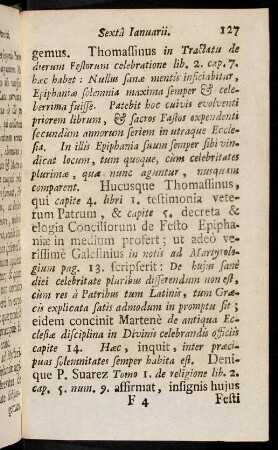 Sextâ Ianuarii. 127
gemus. Thomassinus in Tractatu de
dierum Festorum celebratione lib. 2. cap. 7.
hæc habet: Nullus sanæ mentis inficiabitur,
Epiphaniæ solemnia maxima semper & cele-
berrima fuisse. Patebit hoc cuivis evolventi
priorem librum, & sacros Fastos expendenti
secundùm annorum seriem in utraque Eccle-
sia. In illis Epiphania suum semper sibi vin-
dicat locum, tum quoque, cùm celebritates
plurimæ, quæ nunc aguntur, nusquam
comparent. Hucusque Thomassinus,
qui capite 4. libri 1. testimonia vete-
rum Patrum, & capite 5. decreta &
elogia Conciliorum de Festo Epipha-
niæ in medium profert; ut adeò ve-
rissimè Galesinius in notis ad Martyrolo-
gium pag. 13. scripserit: De hujus sanè
diei celebritate pluribus differendum non est,
cùm res à Patribus tum Latinis, tum Græ-
cis explicata satis admodum in promptu sit;
eidem concinit Martenè de antiqua Ec-
clesiæ disciplina in Divinis celebrandis officiis
capite 14. Hæc, inquit, inter præci-
puas solemnitates semper habita est. Deni-
que P. Suarez Tomo 1. de religione lib. 2.
cap. 5. num. 9. affirmat, insignis hujus
F 4 Festi